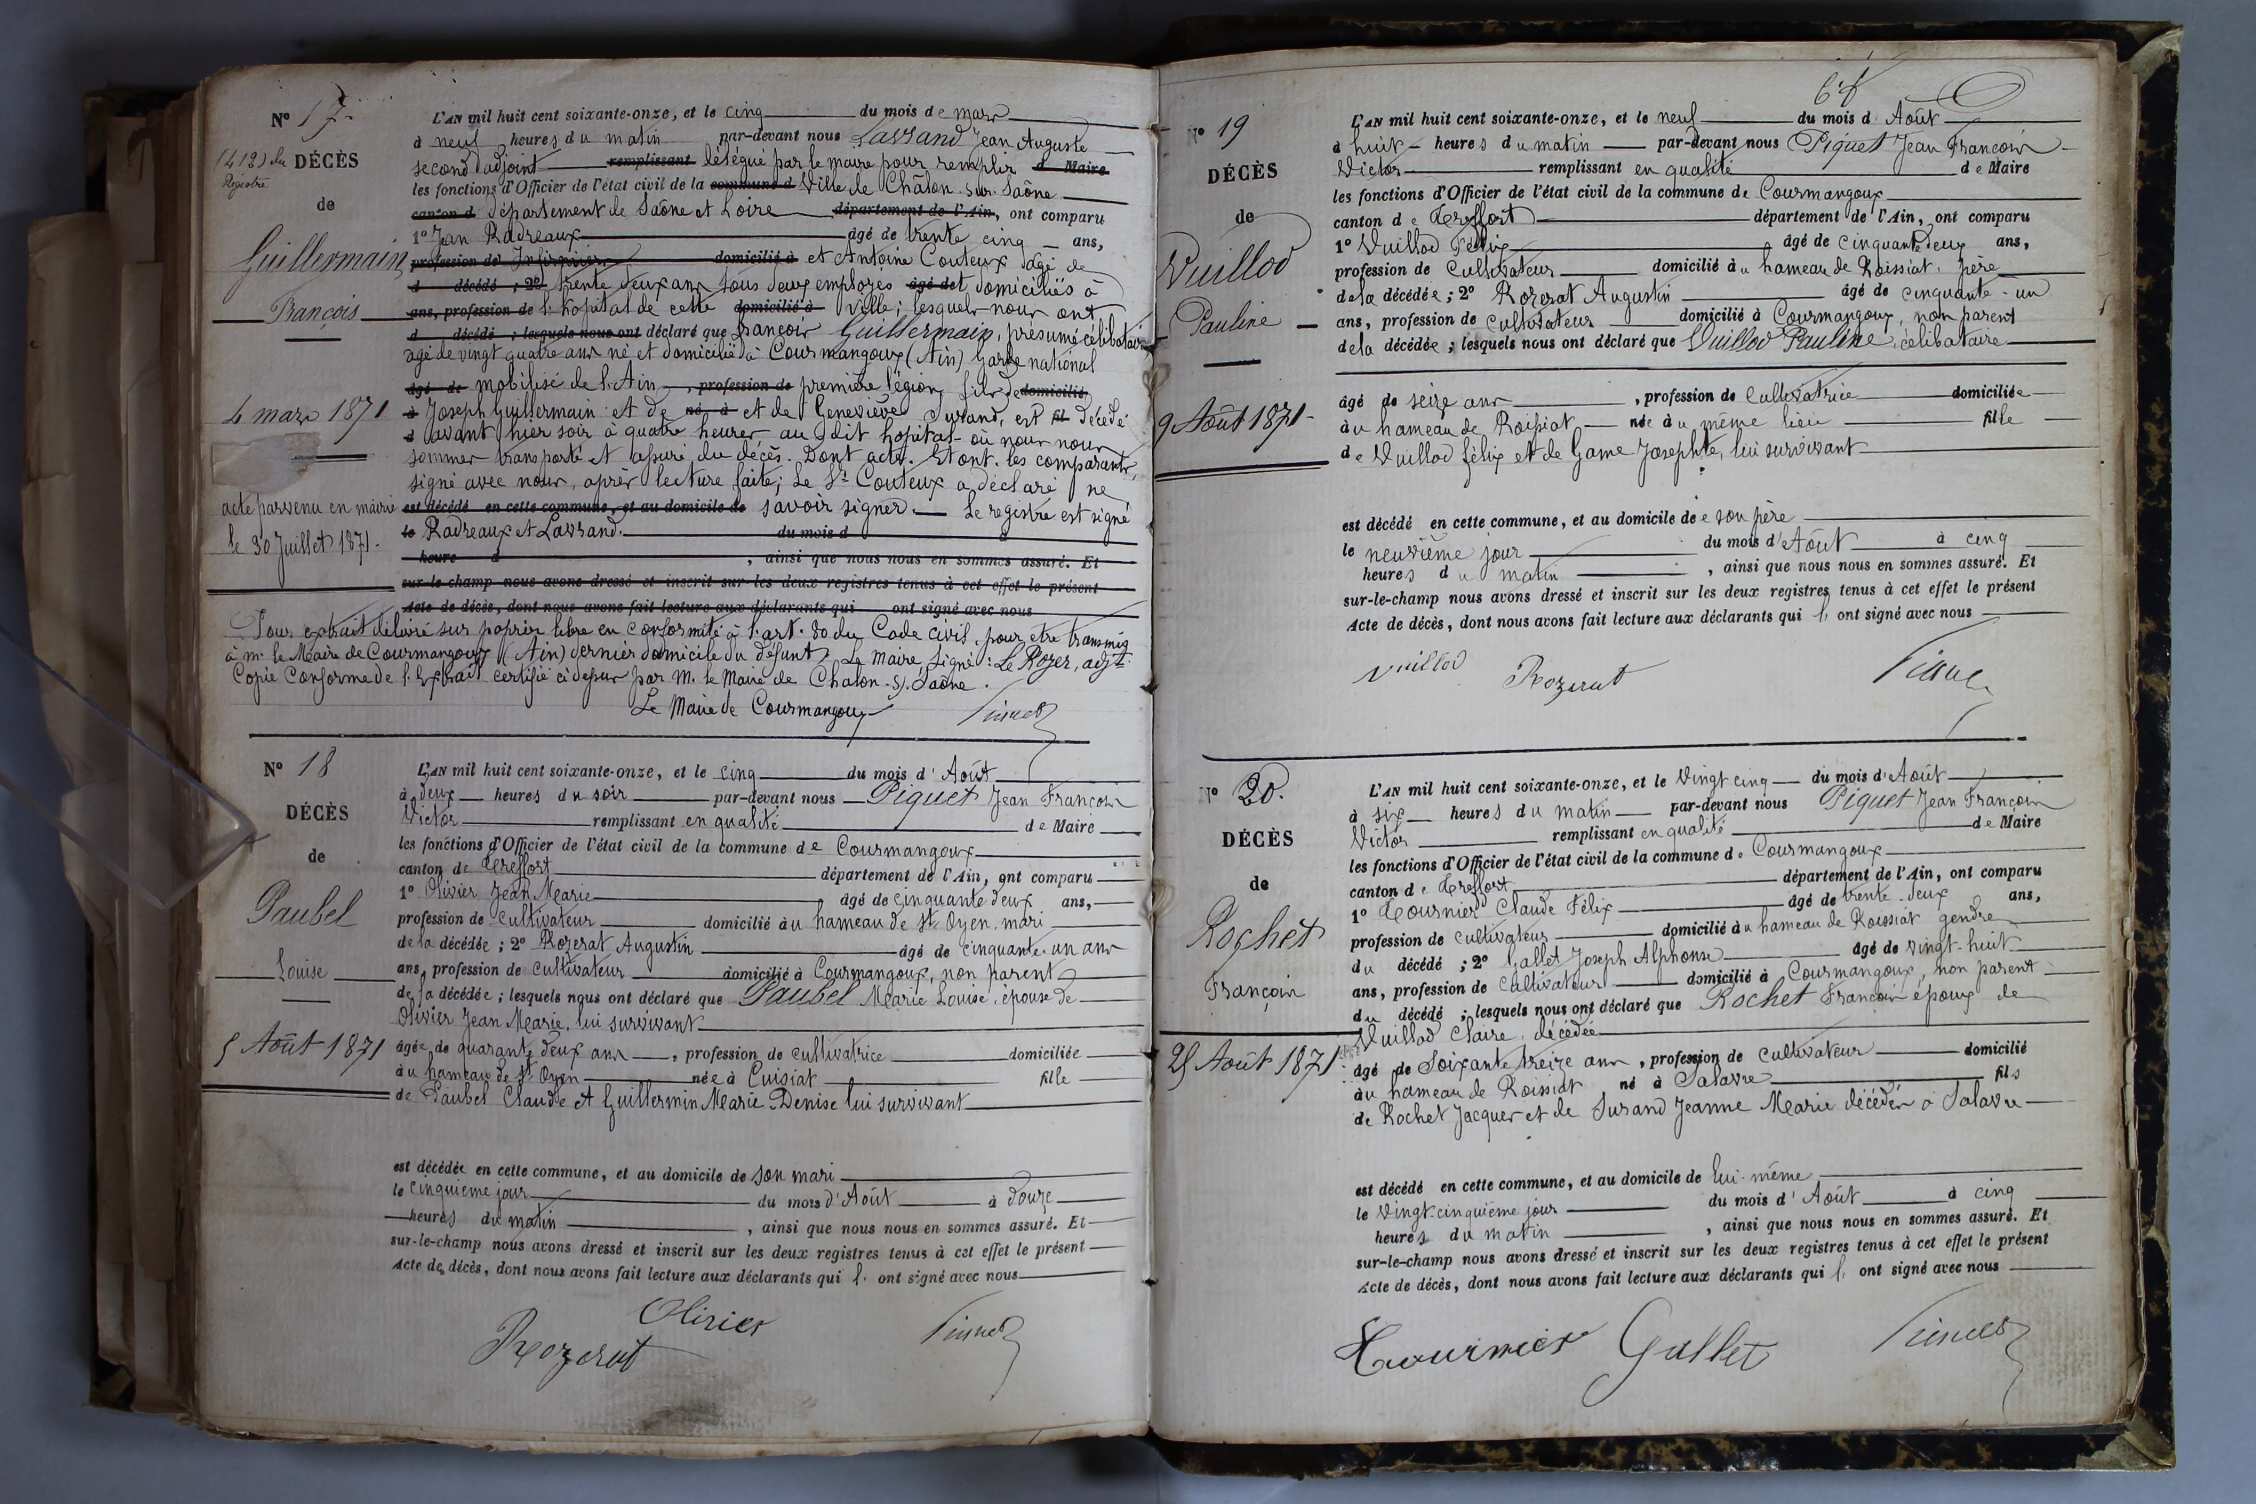 N° 17.
(412) du
Registre
DÉCÈS
de
Guillermain
François
4 mars 1871
acte parvenu en mairie
le 30 Juillet 1871.
L'AN mil huit cent soixante-onze, et le cinq du mois de mars
à neuf heures du matin par-devant nous Lavrand Jean Auguste
second adjoint remplissant délégué par le maire pour remplir d Maire
les fonctions d'Officier de l'état civil de la commune d Ville de Châlon-sur-Saône
canton d département de Saône et Loire département de l'Ain, ont comparu
1° Jean Radreaux âgé de trente cinq ans,
profession de Infirmier domicilié à et Antoine Couteux âgé de
d décédé ; 2° trente deux ans tous deux employés âgé de et domiciliés à
ans, profession de l'hopital de cette domicilié à ville; lesquels nous ont
d décédé ; lesquels nous ont déclaré que françois Guillermain, présumé célibataire
agé de vingt quatre ans né et domicilié à Courmangoux (Ain) Garde national
âgé de mobilisé de l'Ain, profession de première légion, fils de domicilié
à Joseph Guillermain et de né à et de Geneviève Durand, est fil décédé
d avant hier soir à quatre heures au dit hopital où nous nous
sommes transporté et assuré du décès. Dont acte. Et ont les comparants
signé avec nous, après lecture faite; le Sr Couteux a déclaré ne
est décédé en cette commune, et au domicile de savoir signer. Le registre est signé
le Radreaux et Lavrand. du mois d
heure d , ainsi que nous nous en sommes assuré. Et
sur-le-champ nous avons dressé et inscrit sur les deux registres tenus à cet effet le présent
Acte de décès, dont nous avons fait lecture aux déclarants qui ont signé avec nous
Pour extrait délivré sur papier libre en conformité à l'art. 80 du Code civil, pour être transmis
à mr le Maire de Courmangoux (Ain) dernier domicile du défunt. Le Maire, Signé: Le Rozer, adjt.
Copie Conforme de l'Extrait certifié ci dessus par M. le Maire de Chalon-s/-Saône.
Le Maire de Courmangoux
Piquet
N° 18
DÉCÈS
de
Paubel
Louise
5 Août 1871
L'AN mil huit cent soixante-onze, et le cinq du mois d'Août
à deux heures du soir par-devant nous Piquet Jean François
Victor remplissant en qualité de Maire
les fonctions d'Officier de l'état civil de la commune de Courmangoux
canton de Treffort département de l'Ain, ont comparu
1° Olivier Jean Marie âgé de cinquante deux ans,
profession de cultivateur domicilié à u hameau de St Oyen, mari
de la décédée ; 2° Rozerat Augustin âgé de cinquante-un ans
ans, profession de cultivateur domicilié à Courmangoux, non parent
de la décédée ; lesquels nous ont déclaré que Paubel Marie Louise, épouse de
Olivier Jean Marie, lui survivant
âgée de quarante deux ans, profession de cultivatrice domiciliée
à u hameau de St Oyen née à Cuisiat fille
de Paubel Claude et Guillermin Marie Denise lui survivant
est décédée en cette commune, et au domicile de son mari
le cinquième jour du mois d'Août à douze
heures du matin , ainsi que nous nous en sommes assuré. Et
sur-le-champ nous avons dressé et inscrit sur les deux registres tenus à cet effet le présent
Acte de décès, dont nous avons fait lecture aux déclarants qui l' ont signé avec nous
Olivier
Rozerat
Piquet
N° 19
DÉCÈS
de
Vuillod
Pauline
9 Août 1871
L'AN mil huit cent soixante-onze, et le neuf du mois d Août
à huit heures du matin par-devant nous Piquet Jean François
Victor remplissant en qualité de Maire
les fonctions d'Officier de l'état civil de la commune de Courmangoux
canton de Treffort département de l'Ain, ont comparu
1° Vuillod Félix âgé de cinquante deux ans,
profession de cultivateur domicilié à u hameau de Roissiat, père
de la décédée ; 2° Rozerat Augustin âgé de cinquante-un
ans, profession de cultivateur domicilié à Courmangoux, non parent
de la décédée ; lesquels nous ont déclaré que Vuillod Pauline, célibataire
âgé de seize ans , profession de cultivatrice domiciliée
à u hameau de Roissiat née à u même lieu fille
de Vuillod félix et de Game Josephte, lui survivant
est décédé en cette commune, et au domicile de e son père
le neuvième jour du mois d'Août à cinq
heures du matin , ainsi que nous nous en sommes assuré. Et
sur-le-champ nous avons dressé et inscrit sur les deux registres tenus à cet effet le présent
Acte de décès, dont nous avons fait lecture aux déclarants qui l' ont signé avec nous
Vuillod
Rozerat
Piquet
N° 20.
DÉCÈS
de
Rochet
François
25 Août 1871
L'AN mil huit cent soixante-onze, et le vingt cinq du mois d'Août
à six heures du matin par-devant nous Piquet Jean François
Victor remplissant en qualité de Maire
les fonctions d'Officier de l'état civil de la commune de Courmangoux
canton de Treffort département de l'Ain, ont comparu
1° Tournier Claude Félix âgé de trente-deux ans,
profession de cultivateur domicilié à u hameau de Roissiat gendre
du décédé ; 2° Gallet Joseph Alphonse âgé de vingt-huit
ans, profession de cultivateur domicilié à Courmangoux, non parent
du décédé ; lesquels nous ont déclaré que Rochet François époux de
Vuillod Claire, décédée
âgé de soixante treize ans, profession de cultivateur domicilié
à u hameau de Roissiat né à Salavre fils
de Rochet Jacques et de Durand Jeanne Marie décédés à Salavre
est décédé en cette commune, et au domicile de lui-même
le vingt-cinquième jour du mois d'Août à cinq
heures du matin , ainsi que nous nous en sommes assuré. Et
sur-le-champ nous avons dressé et inscrit sur les deux registres tenus à cet effet le présent
Acte de décès, dont nous avons fait lecture aux déclarants qui l' ont signé avec nous
Tournier
Gallet
Piquet